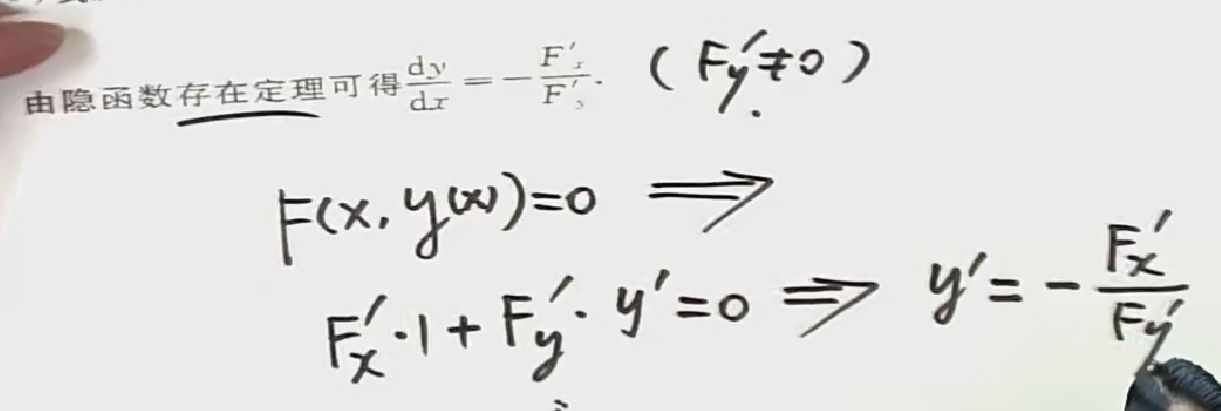 由隐函数存在定理可得 dy/dx = -F'ₓ/F'ᵧ. (Fy'≠0)
F(x, y(x))=0 ⟹
Fx'·1 + Fy'·y'=0 ⟹ y' = -Fx'/Fy'